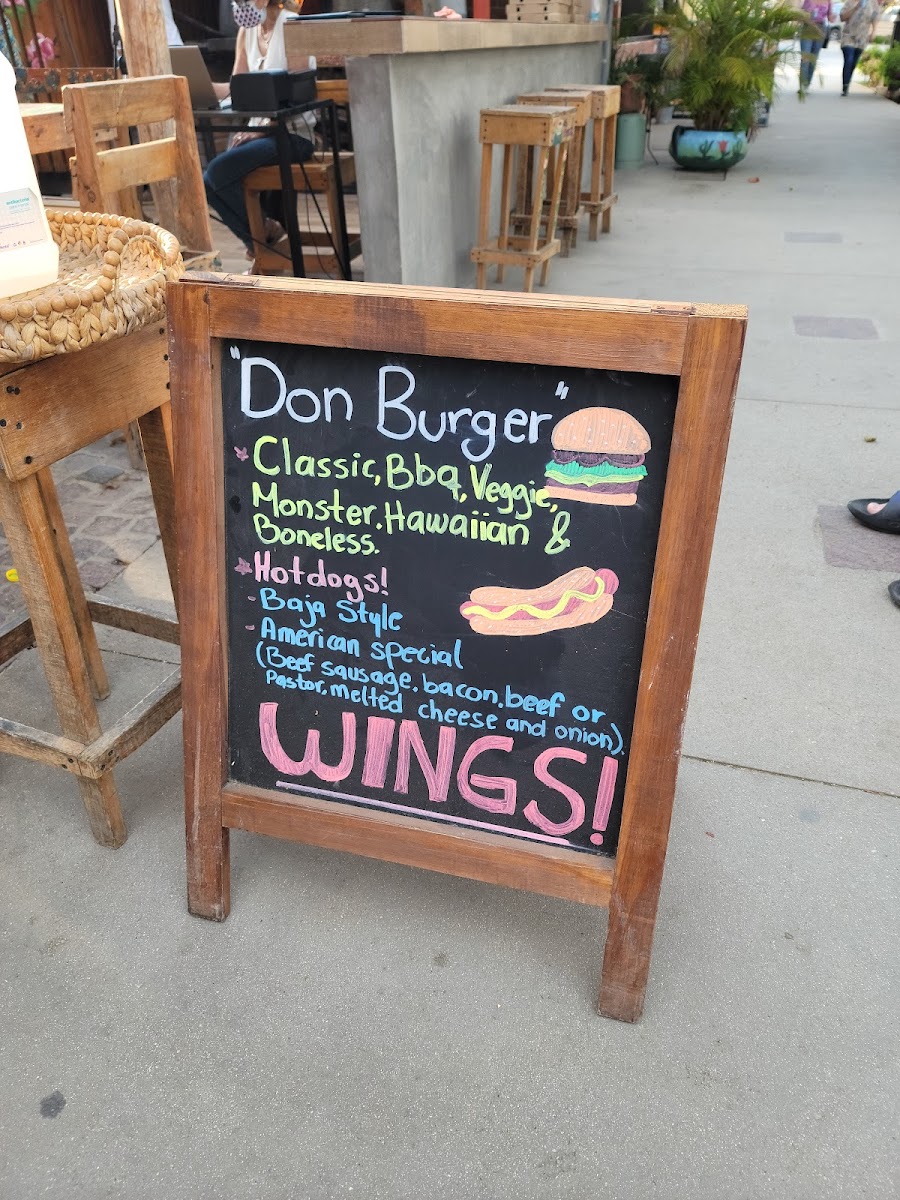 "Don Burger"
Classic, Bbq, Veggie,
Monster, Hawaiian &
Boneless.
Hotdogs!
- Baja Style
- American special
(Beef sausage, bacon, beef or
Pastor, melted cheese and onion).
WINGS!